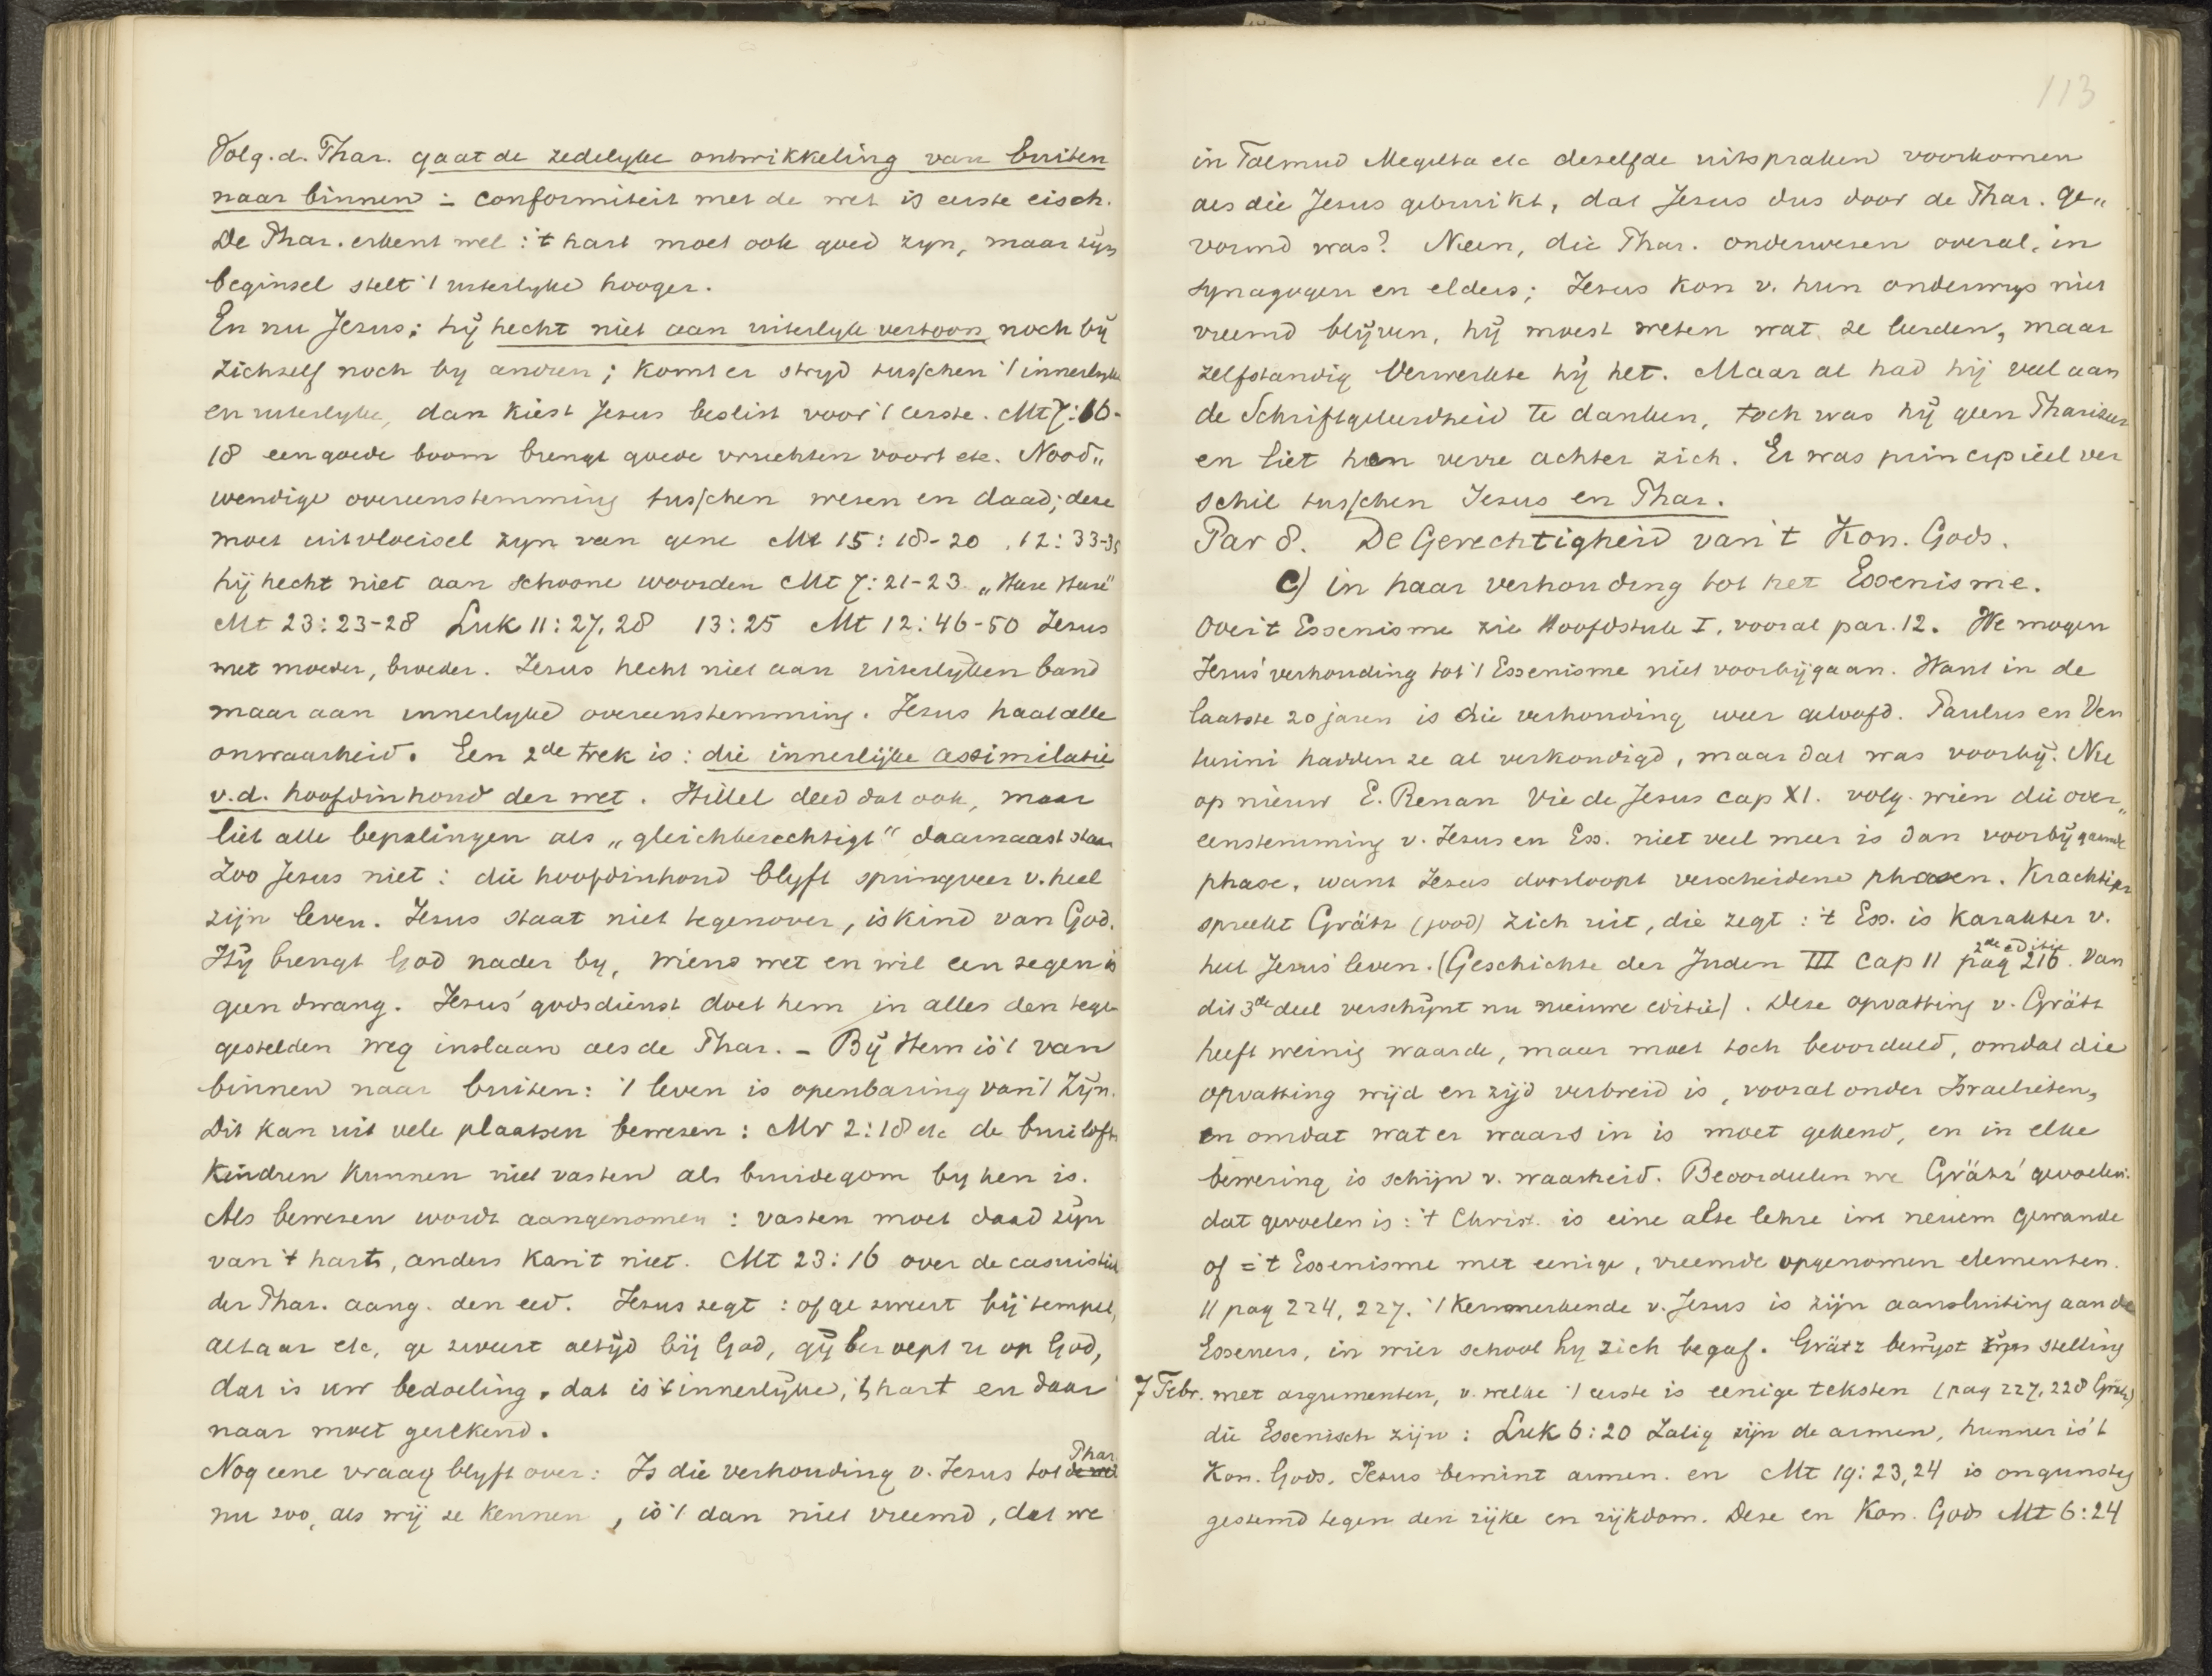 Volg. d. Phar. gaat de zedelyke ontwikkeling van buiten
naar binnen : conformiteit met de wet is eerste eisch.
De Phar. erkent wel : 't hart moet ook goed zyn, maar zyn
beginsel stelt 't uiterlyke hooger.
En nu Jezus: hij hecht niet aan uiterlyk vertoon, noch bij
zichzelf noch by andren; komt er stryd tusschen 't innerlyke
en uiterlyke, dan kiest Jezus beslist voor 't eerste. Mt 7:16-
18 een goede boom brengt goede vruchten voort etc. Nood„
wendige overeenstemming tusschen wezen en daad; deze
moet uitvloeisel zyn van gene Mt 15:18-20 . 12:33-35
hij hecht niet aan schoone woorden Mt 7:21-23 „Here Here"
Mt 23:23-28 Luk 11:27.28 13:25 Mt 12:46-50 Jezus
met moeder, broeder. Jezus hecht niet aan uiterlyken band
maar aan innerlyke overeenstemming. Jezus haat alle
onwaarheid. Een 2de trek is: die innerlijke assimilatie
v.d. hoofdinhoud der wet. Hillel deed dat ook, maar
liet alle bepalingen als „gleichberechtigt" daarnaast staan
Zoo Jezus niet: die hoofdinhoud blyft springveer v. heel
zijn leven. Jezus staat niet tegenover, is kind van God.
Hij brengt God nader by, wiens wet en wil een zegen is
geen dwang. Jezus' godsdienst doet hem in alles den tege
gestelden weg inslaan als de Phar. - Bij Hem is 't van
binnen naar buiten: 't leven is openbaring van 't zijn.
Dit kan uit vele plaatsen bewezen: Mr 2:18 etc de bruilofts
kindren kunnen niet vasten als bruidegom by hen is.
Als bewezen wordt aangenomen : vasten moet daad zijn
van 't hart, anders kan 't niet. Mt 23:16 over de casuistiek
der Phar. aang. den eed. Jezus zegt : of ge zweert bij tempel,
altaar etc, ge zweert altijd bij God, gij beroept u op God,
dat is uw bedoeling, dat is 't innerlijke, 't hart en daar
naar moet gerekend.
Nog eene vraag blyft over: Is die verhouding v. Jezus tot Phar
nu zoo, als wij ze kennen, is 't dan niet vreemd, dat we
113
in Talmud Megilta etc dezelfde uitspraken voorkomen
als die Jezus gebruikt, dat Jezus dus door de Phar. ge„
vormd was? Neen, die Phar. onderwezen overal, in
synagogen en elders; Jezus kon v. hun onderwys niet
vreemd blijven, hij moest weten wat ze leerden, maar
zelfstandig verwerkte hij het. Maar al had hij veel aan
de Schriftgeleerdheid te danken, toch was hij geen Pharizeer
en liet hen verre achter zich. Er was principieel ver
schil tusschen Jezus en Phar.
Par 8. De Gerechtigheid van 't Kon. Gods.
c) in haar verhouding tot het Essenisme.
Over 't Essenisme zie Hoofdstuk I, vooral par. 12. We mogen
Jezus' verhouding tot 't Essenisme niet voorbijgaan. Want in de
laatste 20 jaren is die verhouding weer geloofd. Paulus en Ven
turini hadden ze al verkondigd, maar dat was voorbij. Nu
op nieuw E. Renan Vie de Jesus cap XI. volg. wien die over„
eenstemming v. Jezus en Ess. niet veel meer is dan voorbijgaande
phase, want Jezus doorloopt verscheidene phasen. Krachtiger
spreekt Grätz (jood) zich uit, die zegt : 't Ess. is karakter v.
heel Jezus' leven. (Geschichte der Juden III cap 11 2de editie pag 216. Van
dit 3de deel verschynt nu nieuwe editie). Deze opvatting v. Grätz
heeft weinig waarde, maar moet toch beoordeeld, omdat die
opvatting wijd en zijd verbreid is, vooral onder Israelieten,
en omdat wat er waars in is moet gekend, en in elke
bewering is schijn v. waarheid. Beoordeelen we Grätz' gevoelen.
dat gevoelen is: 't Christ. is eine alte lehre im neuem gewande
of = 't Essenisme met eenige, vreemde opgenomen elementen.
11 pag 224, 227. 't Kenmerkende v. Jezus is zijn aansluiting aan de
Esseners, in wier school hy zich begaf. Grätz bewijst zijn stelling
7 Febr. met argumenten, v. welke 't eerste is eenige teksten (pag 227, 228 Grätz)
die Esseensch zijn : Luk 6:20 Zalig zijn de armen, hunner is 't
Kon. Gods. Jezus bemint armen. en Mt 19:23,24 is ongunstig
gestemd tegen den rijke en rijkdom. Deze en Kon. Gods Mt 6:24